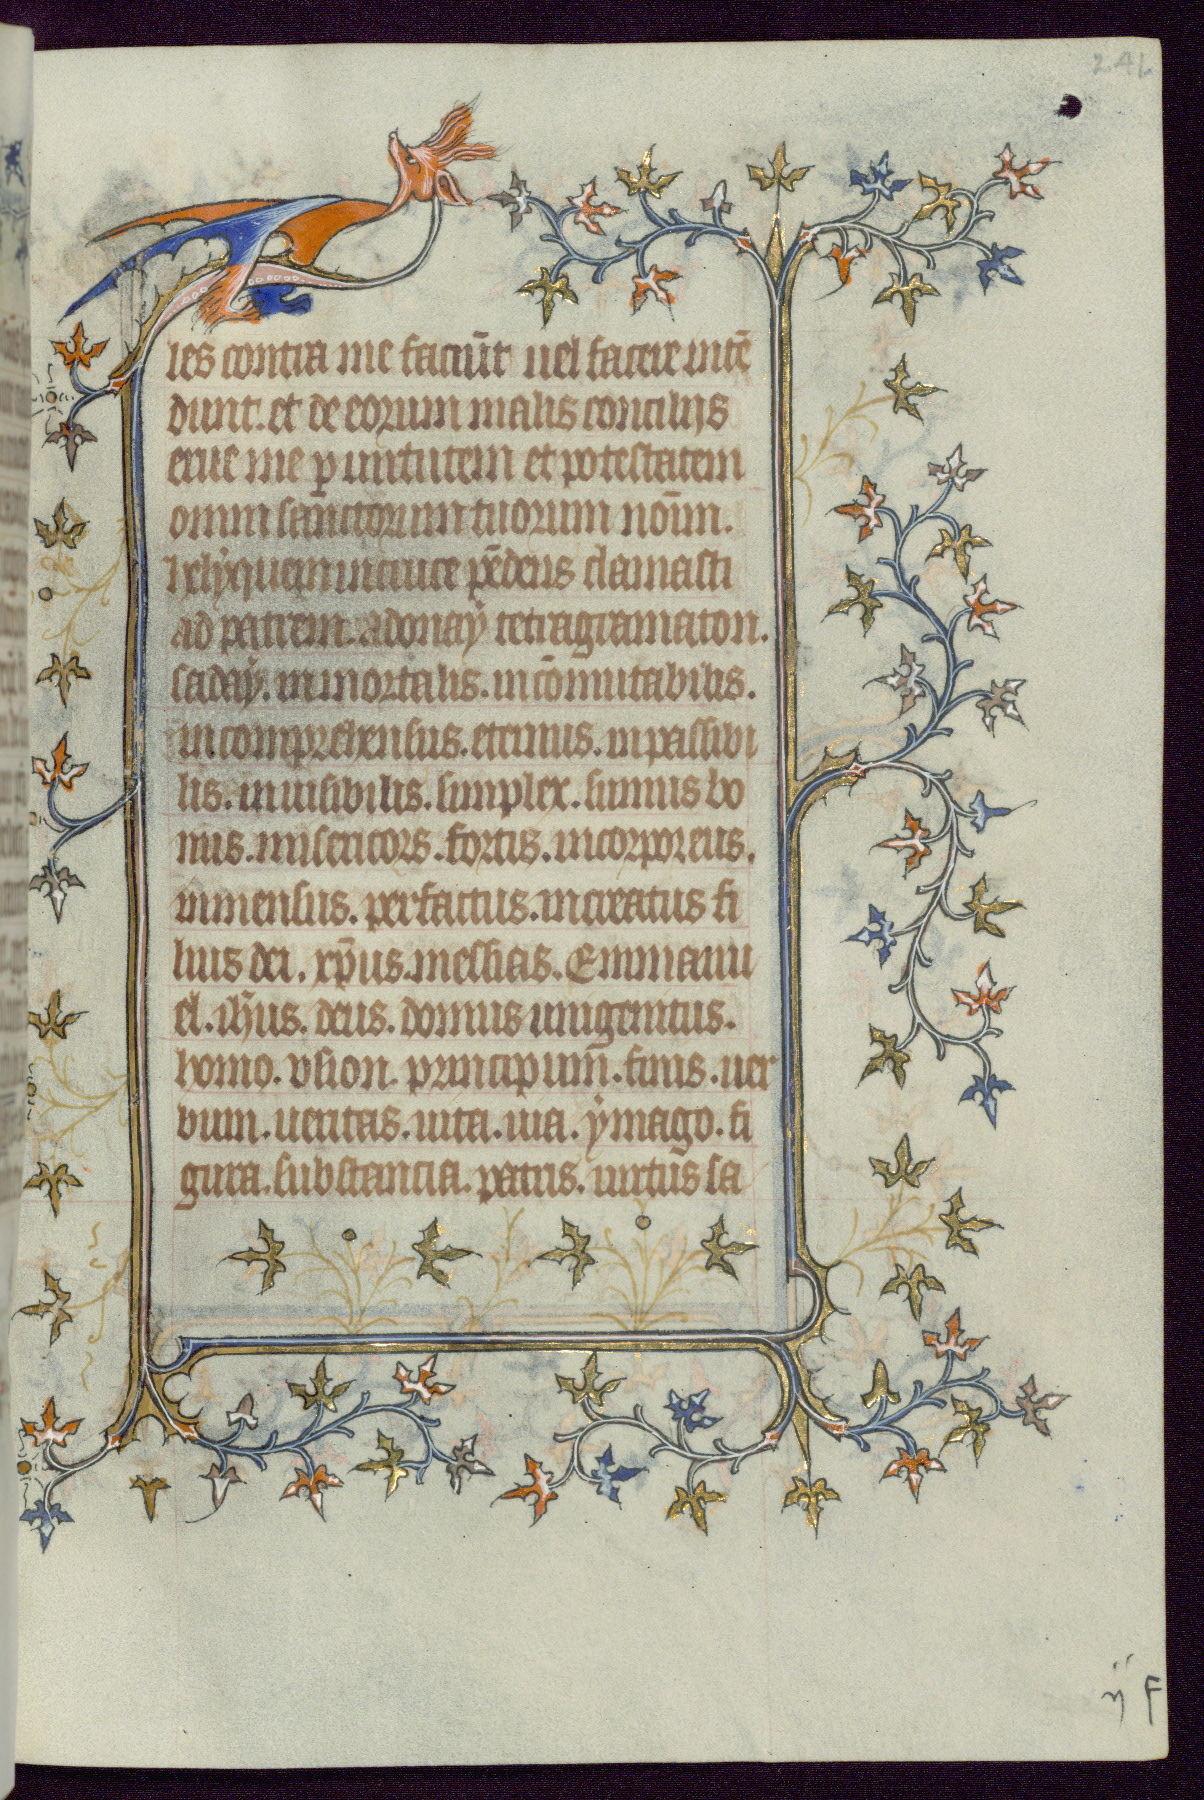 241
les contra me faciūt uel facere intē
dunt. et de eorum malis concilijs
erue me ꝑ uirtutem et potestatem
omni sanctorum tuorum noīm.
hely quem in cruce pēdens clamasti
ad patrem. adonaÿ tetragramaton.
sadaÿ. inmortalis. incōmutabilis.
incomprehensus. eternus. inpassibi
lis. inuisibilis. simplex. sumus bo
nus. misericors. fortis. incorporeus.
inmensus. perfactus. increatus fi
lius dei. xp̄us. messias. Emmanu
el. ih̄us. deus. domus unigenitus.
homo. vsion. principium. finis. uer
bum. ueritas. uita. uia. ÿmago. fi
gura. substancia. patris. uirtus sa